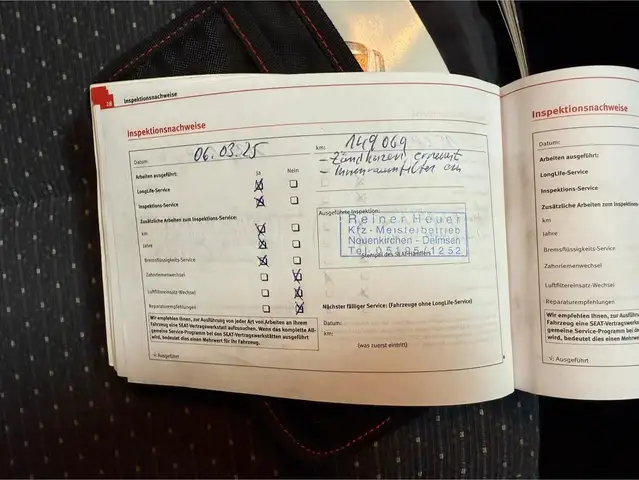 28
Inspektionsnachweise
Inspektionsnachweise
Datum: 06.03.25
km: 149069
- Zündkerzen erneuert
- Innenraumfilter
Arbeiten ausgeführt: Ja Nein
LongLife-Service
Inspektions-Service
Zusätzliche Arbeiten zum Inspektions-Service:
km
Jahre
Bremsflüssigkeits-Service
Zahnriemenwechsel
Luftfiltereinsatz-Wechsel
Reparaturempfehlungen
Wir empfehlen Ihnen, zur Ausführung von jeder Art von Arbeiten an Ihrem
Fahrzeug eine SEAT-Vertragswerkstatt aufzusuchen. Wenn das komplette All-
gemeine Service-Programm bei den SEAT-Vertragswerkstätten ausgeführt
wird, bedeutet dies einen Mehrwert für Ihr Fahrzeug.
√: Ausgeführt
Ausgeführte Inspektion:
Reiner Heuer
Kfz - Meisterbetrieb
Neuenkirchen - Delmsen
Tel. 05195/1252
Stempel des SEAT-Händlers
Nächster fälliger Service: (Fahrzeuge ohne LongLife-Service)
Datum:
km:
(was zuerst eintritt)
Inspektionsnachweise
Datum:
Arbeiten ausgeführt:
LongLife-Service
Inspektions-Service
Zusätzliche Arbeiten zum Inspektions
km
Jahre
Bremsflüssigkeits-Service
Zahnriemenwechsel
Luftfiltereinsatz-Wechsel
Reparaturempfehlungen
Wir empfehlen Ihnen, zur Ausführung
Fahrzeug eine SEAT-Vertragswerkstatt
gemeine Service-Programm bei den SEA
wird, bedeutet dies einen Mehrwert für
√: Ausgeführt